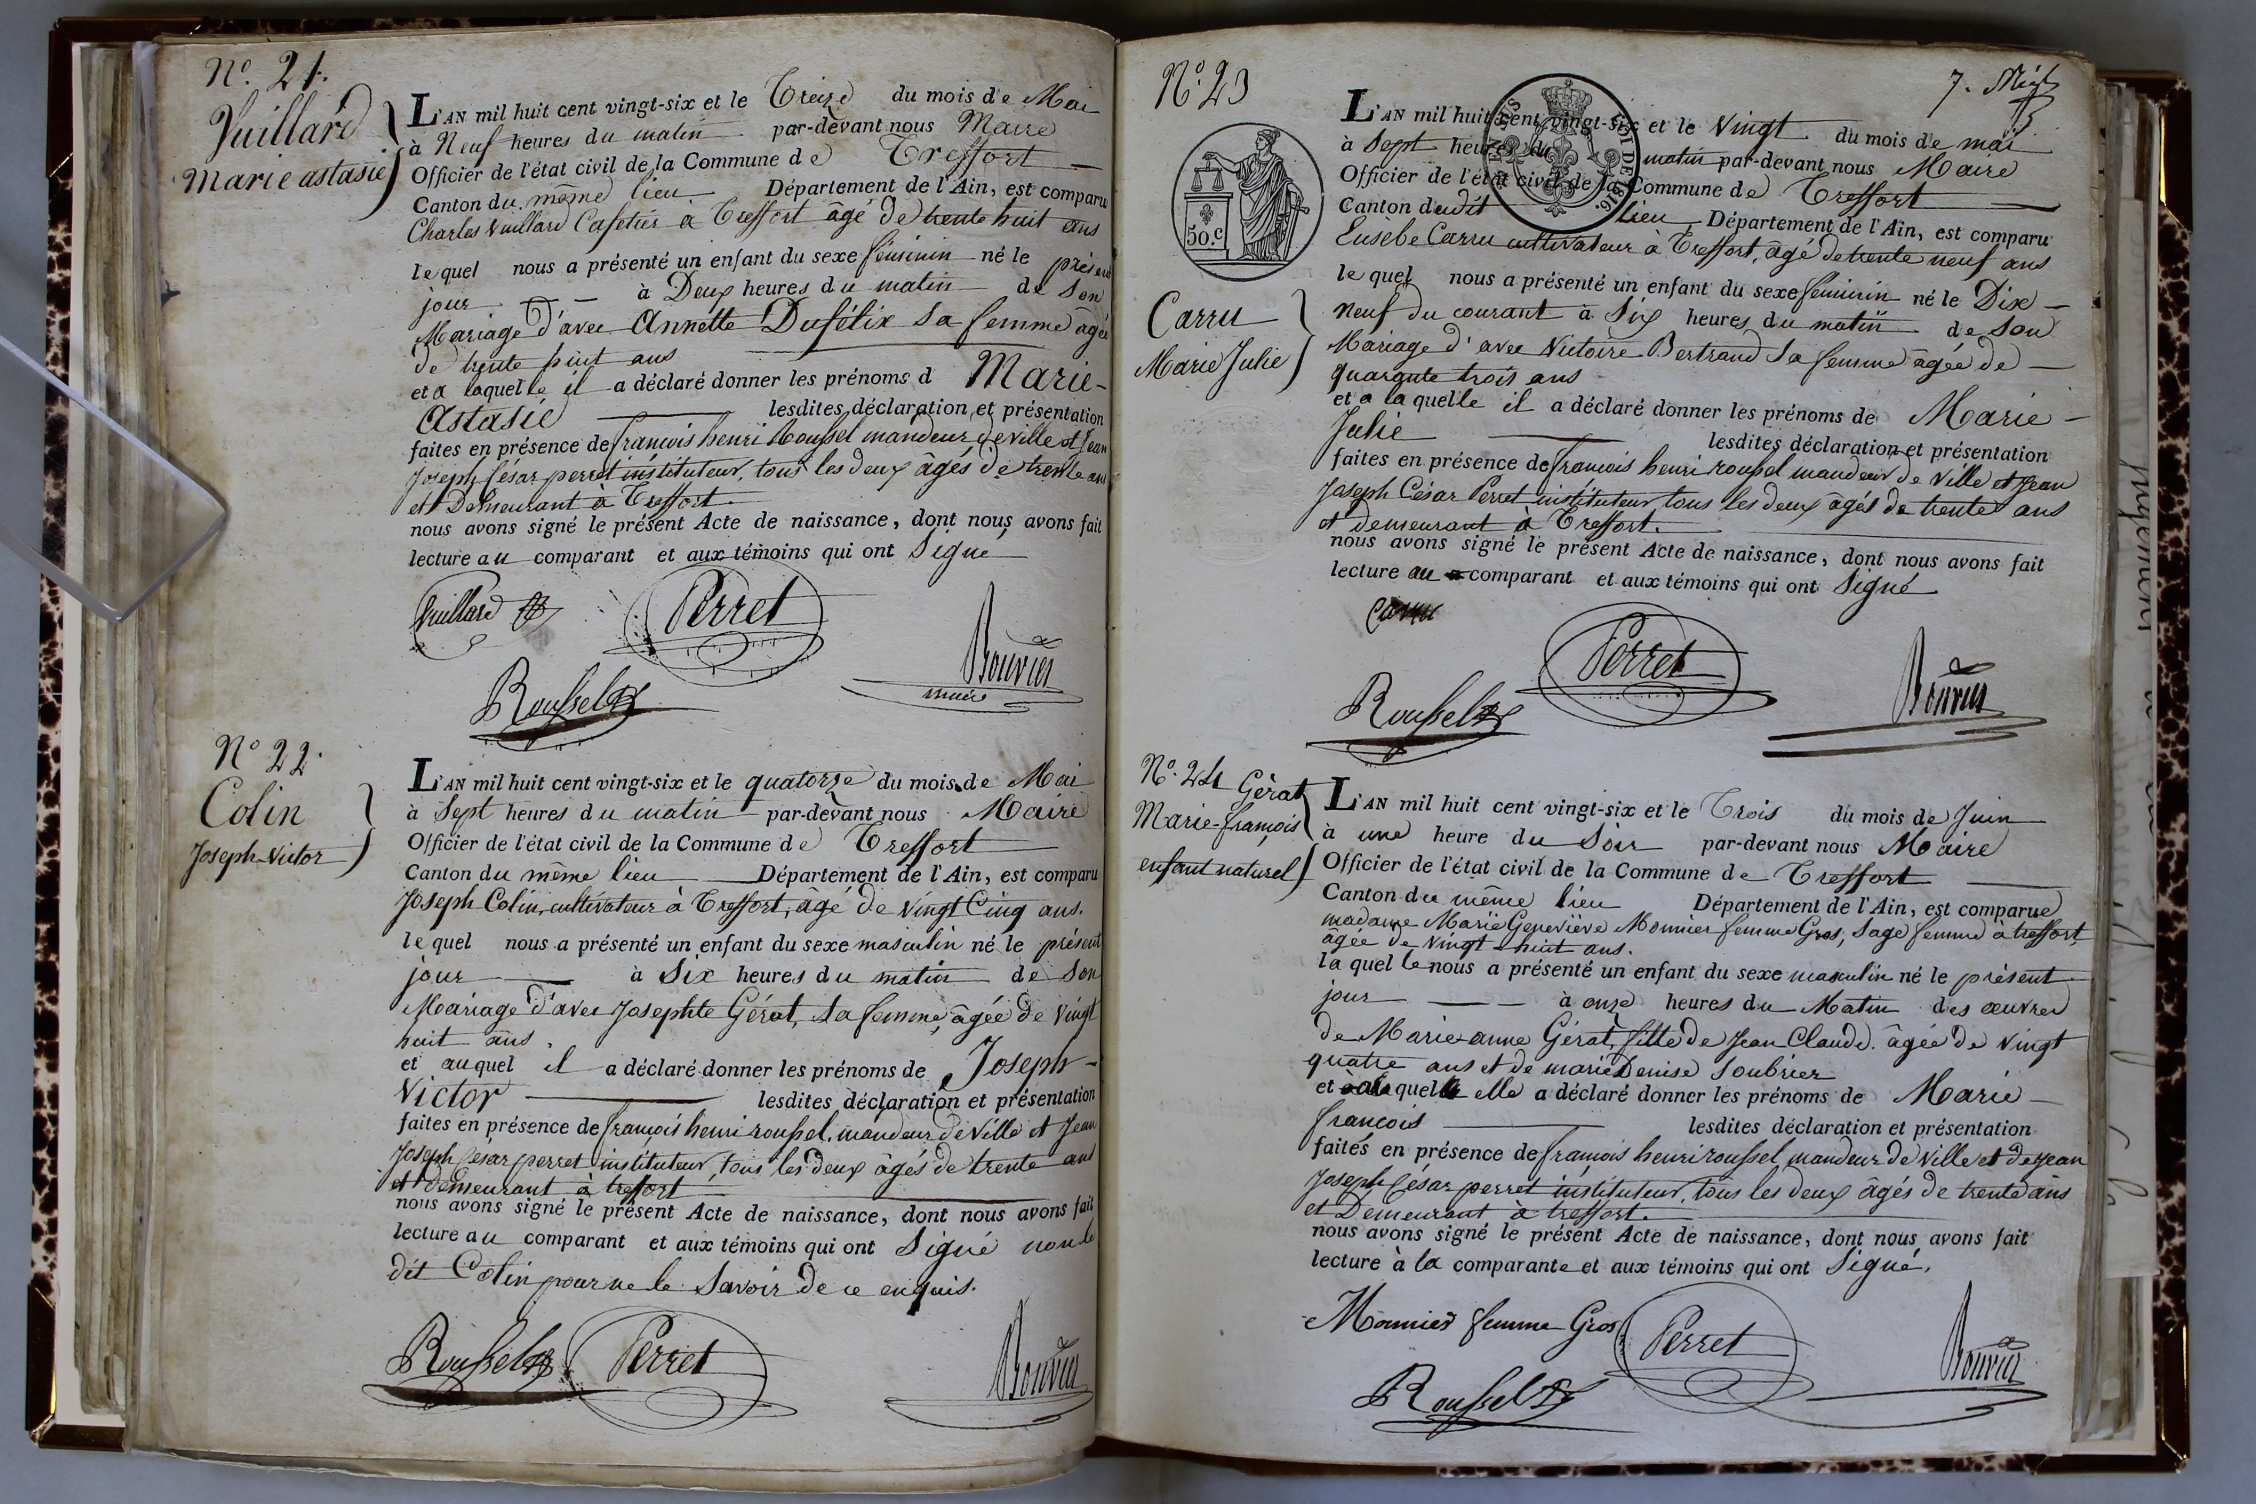 N° 21.
Vuillard
Marie astasie
L'AN mil huit cent vingt-six et le Treize du mois de Mai
à Neuf heures du matin par-devant nous Maire
Officier de l'état civil de la Commune de Treffort
Canton du même lieu Département de l'Ain, est comparu
Charles Vuillard Cafetier à Treffort âgé de trente huit ans
lequel nous a présenté un enfant du sexe féminin né le présent
jour à Deux heures du matin de son
Mariage d'avec Annette Dufélix sa femme âgée
de trente huit ans
et a laquelle il a déclaré donner les prénoms d Marie-
Astasie lesdites déclaration et présentation
faites en présence de françois henri Roussel mandeur de ville et Jean
Joseph César perret instituteur, tous les deux âgés de trente ans
et Demeurant à Treffort.
nous avons signé le présent Acte de naissance, dont nous avons fait
lecture au comparant et aux témoins qui ont Signé
Vuillard
Perret
Bouvier
maire
Roussel
N° 22.
Colin
Joseph-Victor
L'AN mil huit cent vingt-six et le quatorze du mois de Mai
à Sept heures du matin par-devant nous Maire
Officier de l'état civil de la Commune de Treffort
Canton du même lieu Département de l'Ain, est comparu
Joseph Colin, cultivateur à Treffort, âgé de vingt Cinq ans.
lequel nous a présenté un enfant du sexe masculin né le présent
jour à Six heures du matin de son
Mariage d'avec Josephte Gérat, sa femme, âgée de vingt
huit ans.
et auquel il a déclaré donner les prénoms de Joseph-
Victor lesdites déclaration et présentation
faites en présence de françois henri roussel, mandeur de Ville et Jean
Joseph César perret instituteur, tous les deux âgés de trente ans
et demeurant à treffort
nous avons signé le présent Acte de naissance, dont nous avons fait
lecture au comparant et aux témoins qui ont Signé non le
dit Colin pour ne le Savoir de ce enquis.
Roussel
Perret
Bouvier
N° 23
7.
50.c
LOI DE 1816.
Carru
Marie Julie
L'AN mil huit cent vingt-six et le Vingt du mois de mai
à Sept heures du matin par-devant nous Maire
Officier de l'état civil de la Commune de Treffort
Canton dudit lieu, Département de l'Ain, est comparu
Eusèbe Carru cultivateur à Treffort, âgé de trente neuf ans
lequel nous a présenté un enfant du sexe féminin né le Dix-
neuf du courant à Six heures du matin de son
Mariage d'avec Victoire Bertrand sa femme âgée de
quarante trois ans
et a laquelle il a déclaré donner les prénoms de Marie-
Julie lesdites déclaration et présentation
faites en présence de françois henri roussel mandeur de Ville et Jean
Joseph César Perret instituteur tous les deux âgés de trente ans
et demeurant à Treffort.
nous avons signé le présent Acte de naissance, dont nous avons fait
lecture au comparant et aux témoins qui ont Signé
Carru
Perret
Roussel
Bouvier
N° 24 Gérat
Marie-françois
enfant naturel
L'AN mil huit cent vingt-six et le Trois du mois de Juin
à une heure du Soir par-devant nous Maire
Officier de l'état civil de la Commune de Treffort
Canton du même lieu Département de l'Ain, est comparue
madame Marie Geneviève Monnier femme Gros, Sage femme à treffort
âgée de vingt-huit ans.
laquelle nous a présenté un enfant du sexe masculin né le présent
jour à onze heures du Matin des œuvres
de Marie-anne Gérat, fille de Jean Claude. âgée de vingt
quatre ans et de marie Denise Soubrier
et quel elle a déclaré donner les prénoms de Marie-
françois lesdites déclaration et présentation
faites en présence de françois henri roussel mandeur de Ville et de Jean
Joseph César perret instituteur, tous les deux âgés de trente ans
et Demeurant à treffort.
nous avons signé le présent Acte de naissance, dont nous avons fait
lecture à la comparante et aux témoins qui ont Signé.
Monnier femme Gros
Perret
Bouvier
Roussel